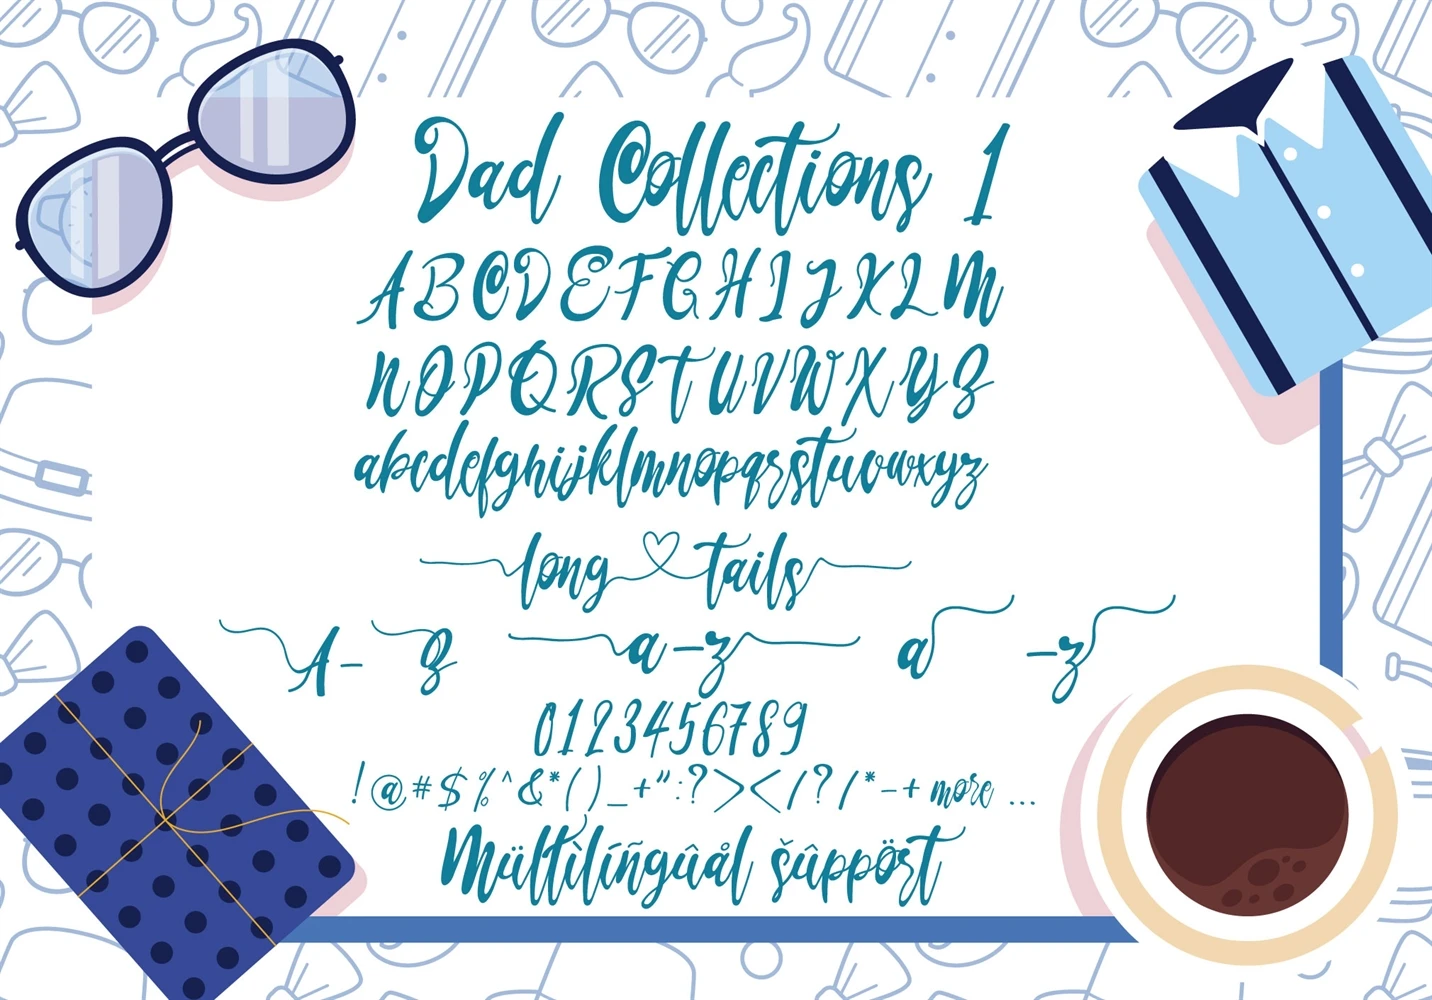 Dad Collections 1
ABCDEFGHIJKLM
NOPQRSTUVWXYZ
abcdefghijklmnopqrstuvwxyz
long tails
A- Z a-z a -z
0123456789
!@#$%^&*()_+":?></?/*-+ more ...
Mültìlíñgûål šûppört